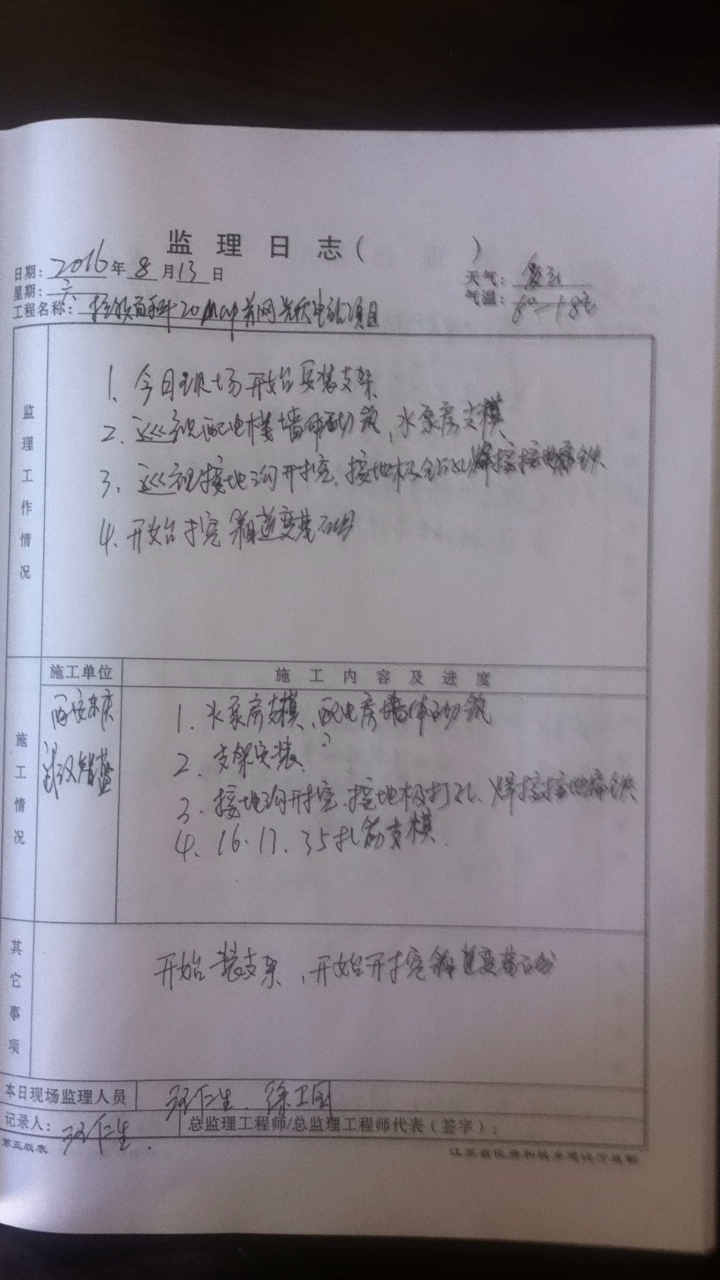 监理日志( )
日期：2016年8月13日
天气：多云
星期：六
气温：8°-18℃
工程名称：20MWp并网光伏电站项目
监理工作情况
1、今日现场开始安装支架
2、巡视配电楼墙体砌筑，水泵房支模
3、巡视接地沟开挖、接地极钻孔、焊接接地扁铁
4、开始挖箱逆变基础
施工情况
施工单位
施工内容及进度
武汉
1、水泵房支模，配电房墙体砌筑
2、支架安装
3、接地沟开挖、接地极打孔、焊接接地扁铁
4、16.17.35扎筋支模.
其它事项
开始装支架，开始开挖箱逆变基础
本日现场监理人员
仁生、徐卫国
记录人：仁生.
总监理工程师/总监理工程师代表（签字）：
第五版表
江苏省住房和城乡建设厅监制